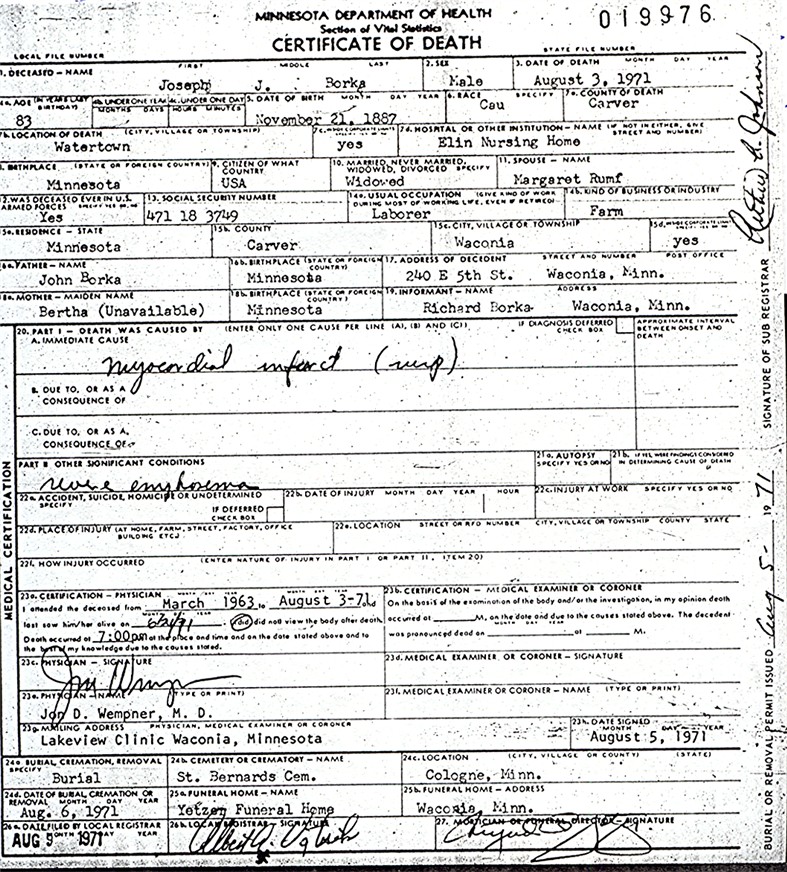 MINNESOTA DEPARTMENT OF HEALTH
Section of Vital Statistics
CERTIFICATE OF DEATH
019976
LOCAL FILE NUMBER STATE FILE NUMBER
1. DECEASED – NAME FIRST MIDDLE LAST 2. SEX 3. DATE OF DEATH MONTH DAY YEAR
Joseph J. Borka Male August 3, 1971
4a. AGE (IN YEARS LAST BIRTHDAY) 4b. UNDER ONE YEAR MONTHS DAYS 4c. UNDER ONE DAY HOURS MINUTES 5. DATE OF BIRTH MONTH DAY YEAR 6. RACE SPECIFY 7a. COUNTY OF DEATH
83 November 21, 1887 Cau Carver
7b. LOCATION OF DEATH (CITY, VILLAGE OR TOWNSHIP) 7d. HOSPITAL OR OTHER INSTITUTION – NAME (IF NOT IN EITHER, GIVE STREET AND NUMBER)
Watertown yes Elin Nursing Home
8. BIRTHPLACE (STATE OR FOREIGN COUNTRY) 9. CITIZEN OF WHAT COUNTRY 10. MARRIED, NEVER MARRIED, WIDOWED, DIVORCED SPECIFY 11. SPOUSE – NAME
Minnesota USA Widowed Margaret Rumf
12. WAS DECEASED EVER IN U.S. ARMED FORCES 13. SOCIAL SECURITY NUMBER 14a. USUAL OCCUPATION (GIVE KIND OF WORK DURING MOST OF WORKING LIFE, EVEN IF RETIRED) 14b. KIND OF BUSINESS OR INDUSTRY
Yes 471 18 3749 Laborer Farm
15a. RESIDENCE – STATE 15b. COUNTY 15c. CITY, VILLAGE OR TOWNSHIP
Minnesota Carver Waconia yes
16a. FATHER – NAME 16b. BIRTHPLACE (STATE OR FOREIGN COUNTRY) 17. ADDRESS OF DECEDENT STREET AND NUMBER POST OFFICE
John Borka Minnesota 240 E 5th St. Waconia, Minn.
18a. MOTHER – MAIDEN NAME 18b. BIRTHPLACE (STATE OR FOREIGN COUNTRY) 19. INFORMANT – NAME ADDRESS
Bertha (Unavailable) Minnesota Richard Borka Waconia, Minn.
20. PART I – DEATH WAS CAUSED BY (ENTER ONLY ONE CAUSE PER LINE (A), (B) AND (C)) IF DIAGNOSIS DEFERRED CHECK BOX APPROXIMATE INTERVAL BETWEEN ONSET AND DEATH
A. IMMEDIATE CAUSE
Myocardial infarct
B. DUE TO, OR AS A CONSEQUENCE OF
C. DUE TO, OR AS A CONSEQUENCE OF
PART II OTHER SIGNIFICANT CONDITIONS 21a. AUTOPSY SPECIFY YES OR NO 21b. IF YES, WERE FINDINGS CONSIDERED IN DETERMINING CAUSE OF DEATH
severe emphysema
22a. ACCIDENT, SUICIDE, HOMICIDE OR UNDETERMINED SPECIFY IF DEFERRED CHECK BOX 22b. DATE OF INJURY MONTH DAY YEAR HOUR 22c. INJURY AT WORK SPECIFY YES OR NO
22d. PLACE OF INJURY (AT HOME, FARM, STREET, FACTORY, OFFICE BUILDING ETC.) 22e. LOCATION STREET OR RFD NUMBER CITY, VILLAGE OR TOWNSHIP COUNTY STATE
22f. HOW INJURY OCCURRED (ENTER NATURE OF INJURY IN PART I OR PART II, ITEM 20)
MEDICAL CERTIFICATION
23a. CERTIFICATION – PHYSICIAN
I attended the deceased from March 1963 to August 3-71 and
last saw him/her alive on (did) did not view the body after death.
Death occurred at 7:00pm at the place and time and on the date stated above and to
the best of my knowledge due to the causes stated.
23b. CERTIFICATION – MEDICAL EXAMINER OR CORONER
On the basis of the examination of the body and/or the investigation, in my opinion death
occurred at M, on the date and due to the causes stated above. The decedent
MONTH DAY YEAR
was pronounced dead on at M.
23c. PHYSICIAN – SIGNATURE 23d. MEDICAL EXAMINER OR CORONER – SIGNATURE
23e. PHYSICIAN – NAME (TYPE OR PRINT) 23f. MEDICAL EXAMINER OR CORONER – NAME (TYPE OR PRINT)
Jon D. Wempner, M. D.
23g. MAILING ADDRESS PHYSICIAN, MEDICAL EXAMINER OR CORONER 23h. DATE SIGNED MONTH DAY YEAR
Lakeview Clinic Waconia, Minnesota August 5, 1971
24a. BURIAL, CREMATION, REMOVAL SPECIFY 24b. CEMETERY OR CREMATORY – NAME 24c. LOCATION (CITY, VILLAGE OR COUNTY) (STATE)
Burial St. Bernards Cem. Cologne, Minn.
24d. DATE OF BURIAL, CREMATION OR REMOVAL MONTH DAY YEAR 25a. FUNERAL HOME – NAME 25b. FUNERAL HOME – ADDRESS
Aug. 6, 1971 Yetzer Funeral Home Waconia, Minn.
26a. DATE FILED BY LOCAL REGISTRAR MONTH DAY YEAR 26b. LOCAL REGISTRAR – SIGNATURE 27. MORTICIAN OR FUNERAL DIRECTOR – SIGNATURE
AUG 9 1971
BURIAL OR REMOVAL PERMIT ISSUED Aug 5- 1971 SIGNATURE OF SUB REGISTRAR